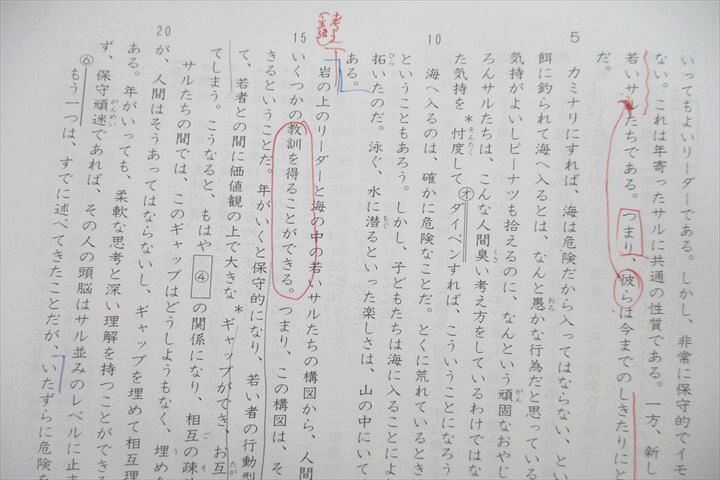 いってもよいリーダーである。しかし、非常に保守的でイモ
ない。これは年寄ったサルに共通の性質である。一方、新し
若いサルたちである。つまり、彼らは今までのしきたりにと
だ。
5
カミナリにすれば、海は危険だから入ってはならない、とい
餌に釣られて海へ入るとは、なんと愚かな行為だと思っている
気持がよいしピーナツも拾えるのに、なんという頑固なおやじ
ろんサルたちは、こんな人間臭い考え方をしているわけではな
た気持を*忖度して㋔ダイベンすれば、こういうことになろう
10
海へ入るのは、確かに危険なことだ。とくに荒れているとき
ということもあろう。しかし、子どもたちは海に入ることによ
拓いたのだ。泳ぐ、水に潜るといった楽しさは、山の中にいて
ある。
15
岩の上のリーダーと海の中の若いサルたちの構図から、人間
いくつかの教訓を得ることができる。つまり、この構図は、そ
きるということだ。年がいくと保守的になり、若い者の行動型
て、若者との間に価値観の上で大きな*ギャップができ、お互
てしまう。こうなると、もはや④の関係になり、相互の疎
サルたちの間では、このギャップはどうしようもなく、埋め合
20
が、人間はそうあってはならないし、ギャップを埋めて相互理
ある。年がいっても、柔軟な思考と深い理解を持つことができ
ず、保守頑迷であれば、その人の頭脳はサル並みのレベルに止ま
⑥もう一つは、すでに述べてきたことだが、いたずらに危険を